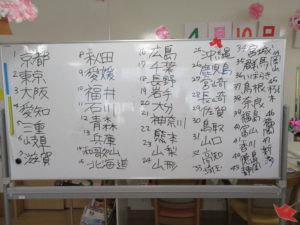 4 月 10
1 京都
2 東京
3 大阪
4 愛知
5 三重
6 岐阜
7 滋賀
8 秋田
9 愛媛
10 福井
11 石川
12 青森
13 兵庫
14 和歌山
15 北海道
16 広島
17 千葉
18 長野
19 岩手
20 大分
21 神奈川
22 熊本
23 山梨
24 山形
25 沖縄
26 鹿児島
27 宮崎
28 長崎
29 佐賀
30 鳥取
31 山口
32 高知
33 埼玉
34 宮城
35 群馬
37 島根
38 奈良
39 福島
40 富山
41 香川
42 徳島
43 新潟